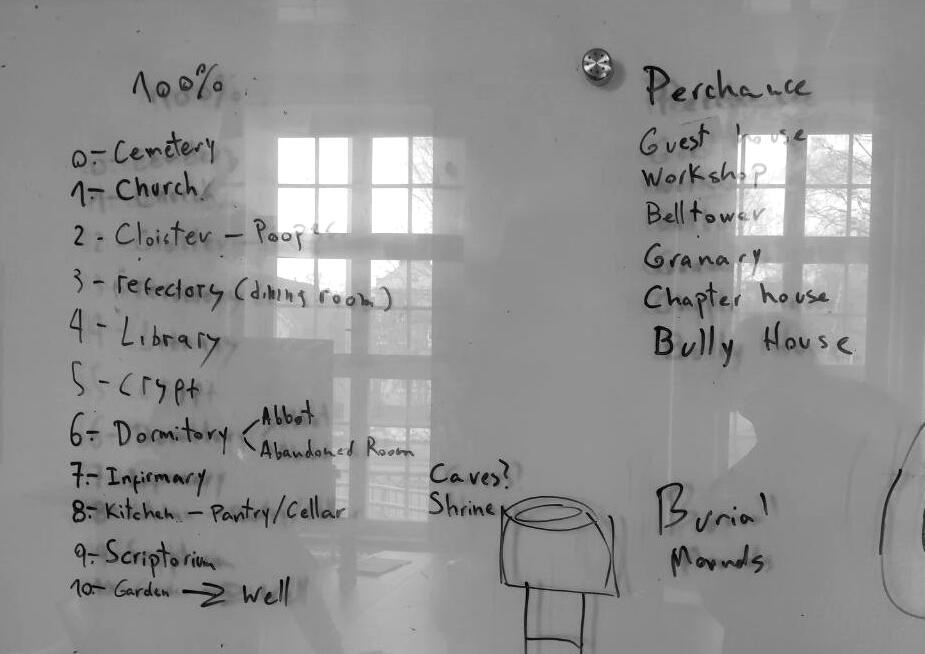 100%
0- Cemetery
1- Church
2 - Cloister - Pooper
3 - refectory (dining room)
4 - Library
5 - Crypt
6- Dormitory < Abbot
Abandoned Room
7- Infirmary
8- Kitchen - Pantry/Cellar
9- Scriptorium
10- Garden → Well
Caves?
Shrine
Perchance
Guest house
Workshop
Belltower
Granary
Chapter house
Bully House
Burial
Mounds